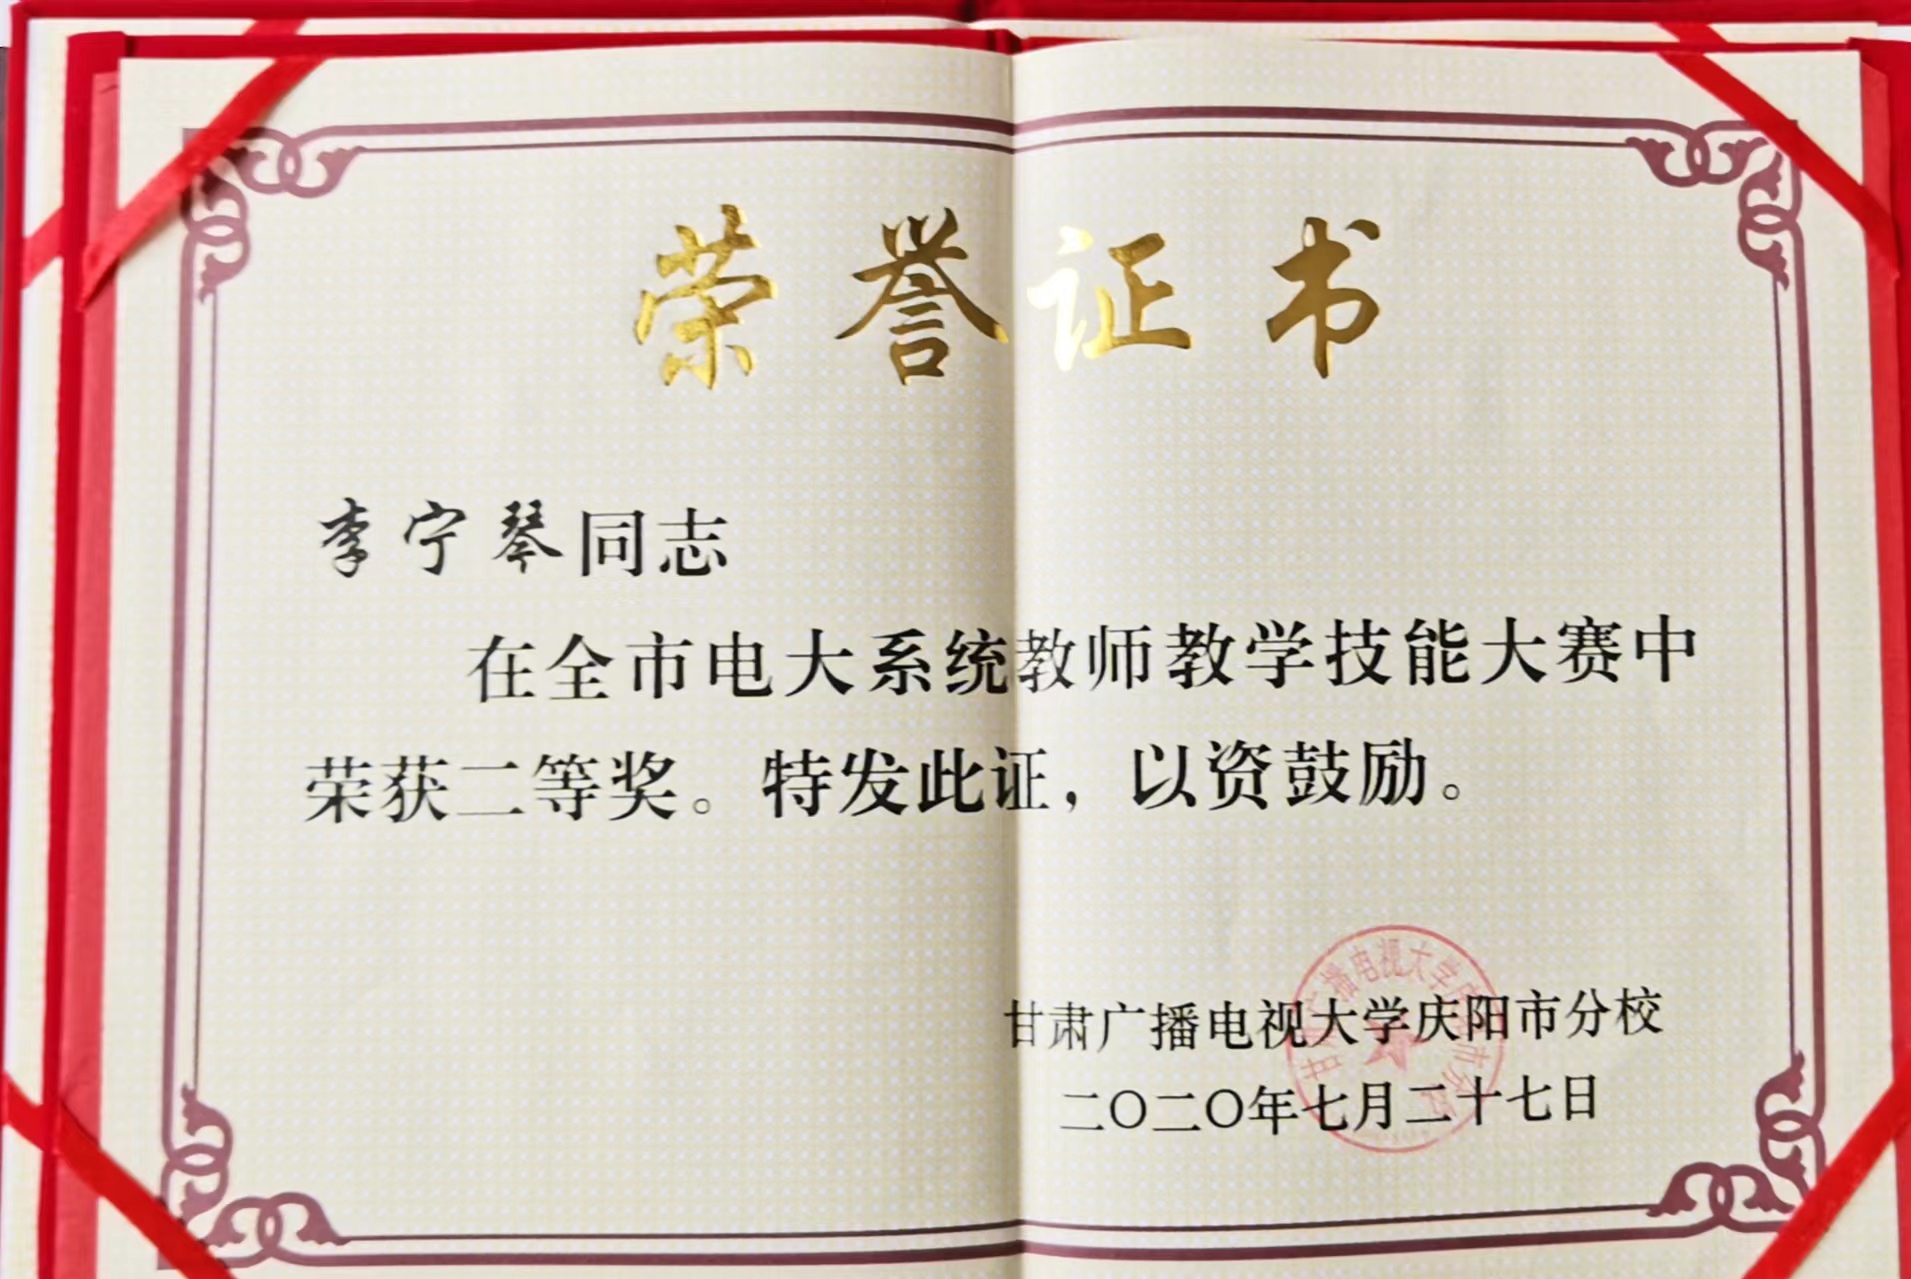 荣誉证书
李宁琴同志
在全市电大系统教师教学技能大赛中
荣获二等奖。特发此证，以资鼓励。
甘肃广播电视大学庆阳市分校
二〇二〇年七月二十七日